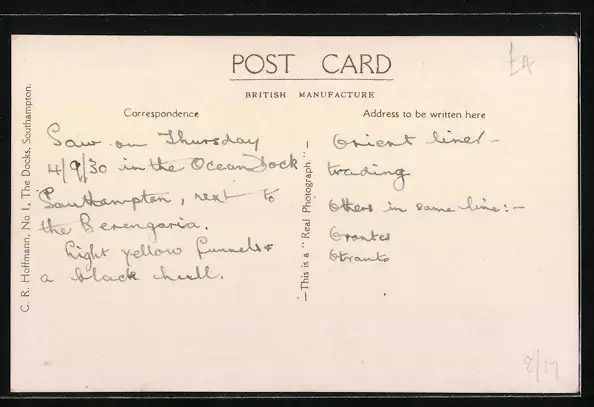 POST CARD
BRITISH MANUFACTURE
Correspondence
Address to be written here
Saw on Thursday
4/9/30 in the Ocean Dock
Southampton, next to
the Berengaria.
Light yellow funnels &
a black hull.
Orient liner -
trading
Others in same line:-
Orontes
Otranto
C. R. Hoffmann, No 1, The Docks, Southampton.
—This is a "Real Photograph"—
8/17